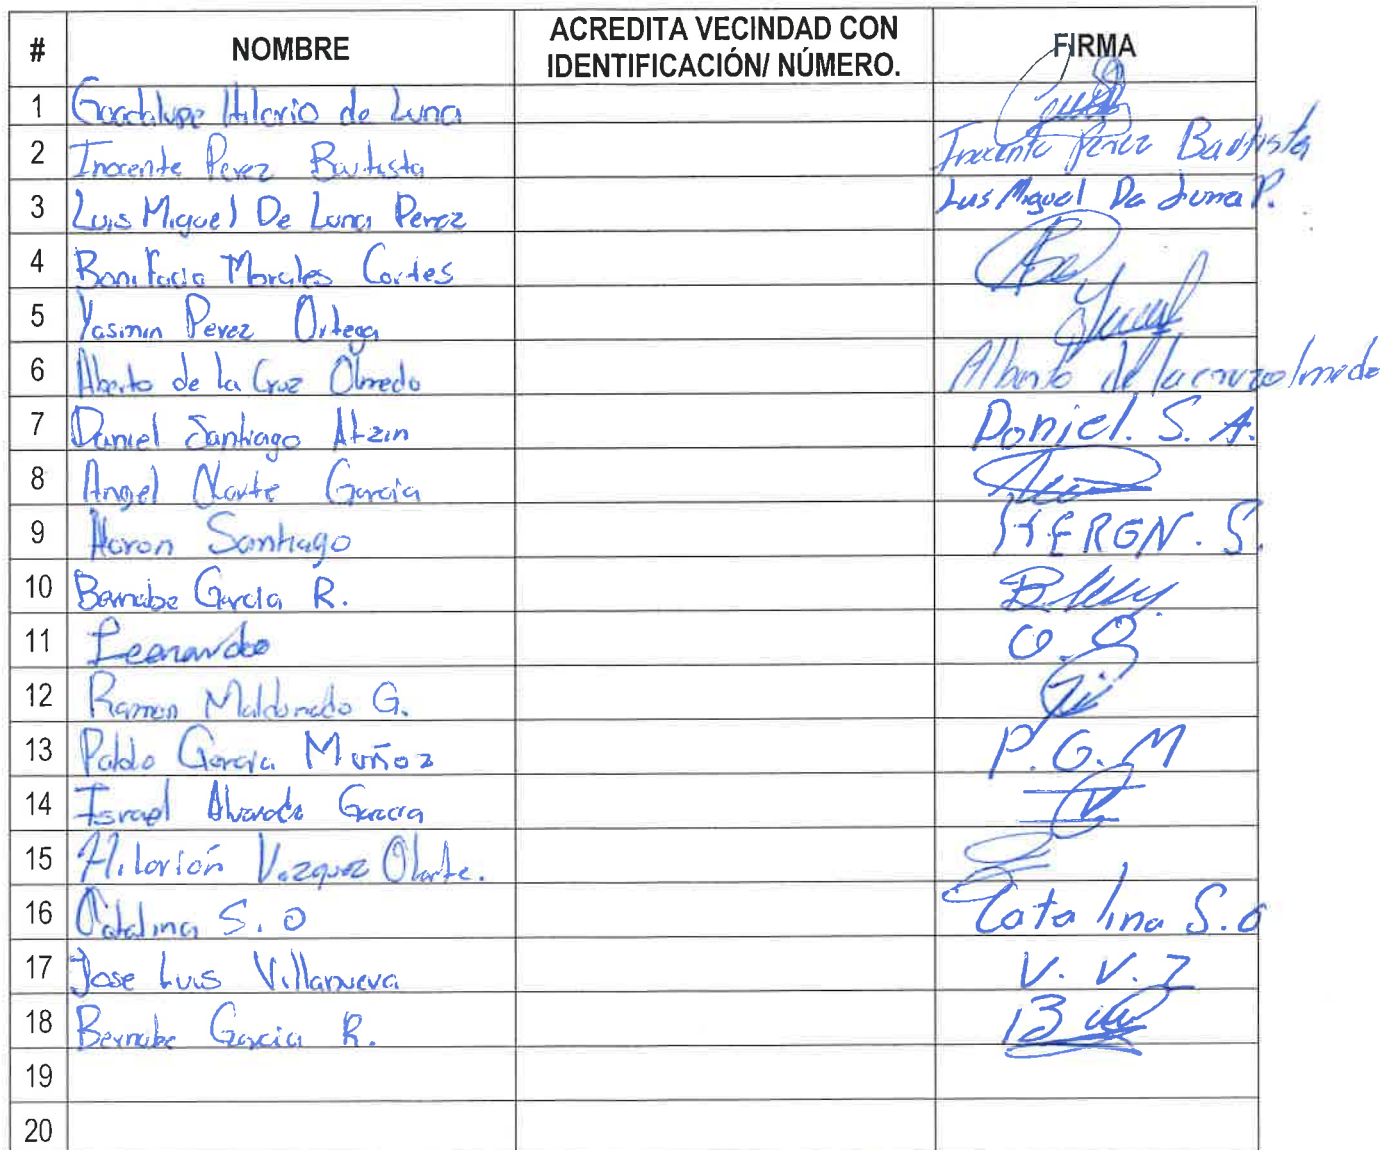 # NOMBRE ACREDITA VECINDAD CON IDENTIFICACIÓN/ NÚMERO. FIRMA
1 Guadalupe Hilario de Luna
2 Inocente Perez Bautista Inocente Perez Bautista
3 Luis Miguel De Luna Perez Luis Miguel De Luna P.
4 Bonifacia Morales Cortes
5 Yasmin Perez Ortega
6 Alberto de la Cruz Olmedo Alberto de la cruz olmedo
7 Daniel Santiago Atzin Daniel. S. A.
8 Angel Olarte Garcia
9 Santiago S.
10 Bernabe Garcia R.
11 Leonardo O. O
12 Ramon Maldonado G.
13 Pablo Garcia Muñoz P. G. M
14 Israel Alvarado Garcia
15 Hilarión Vazquez Olarte.
16 Catalina S. O Catalina S. O
17 Jose Luis Villanueva V. V. Z
18 Bernabe Garcia R.
19
20